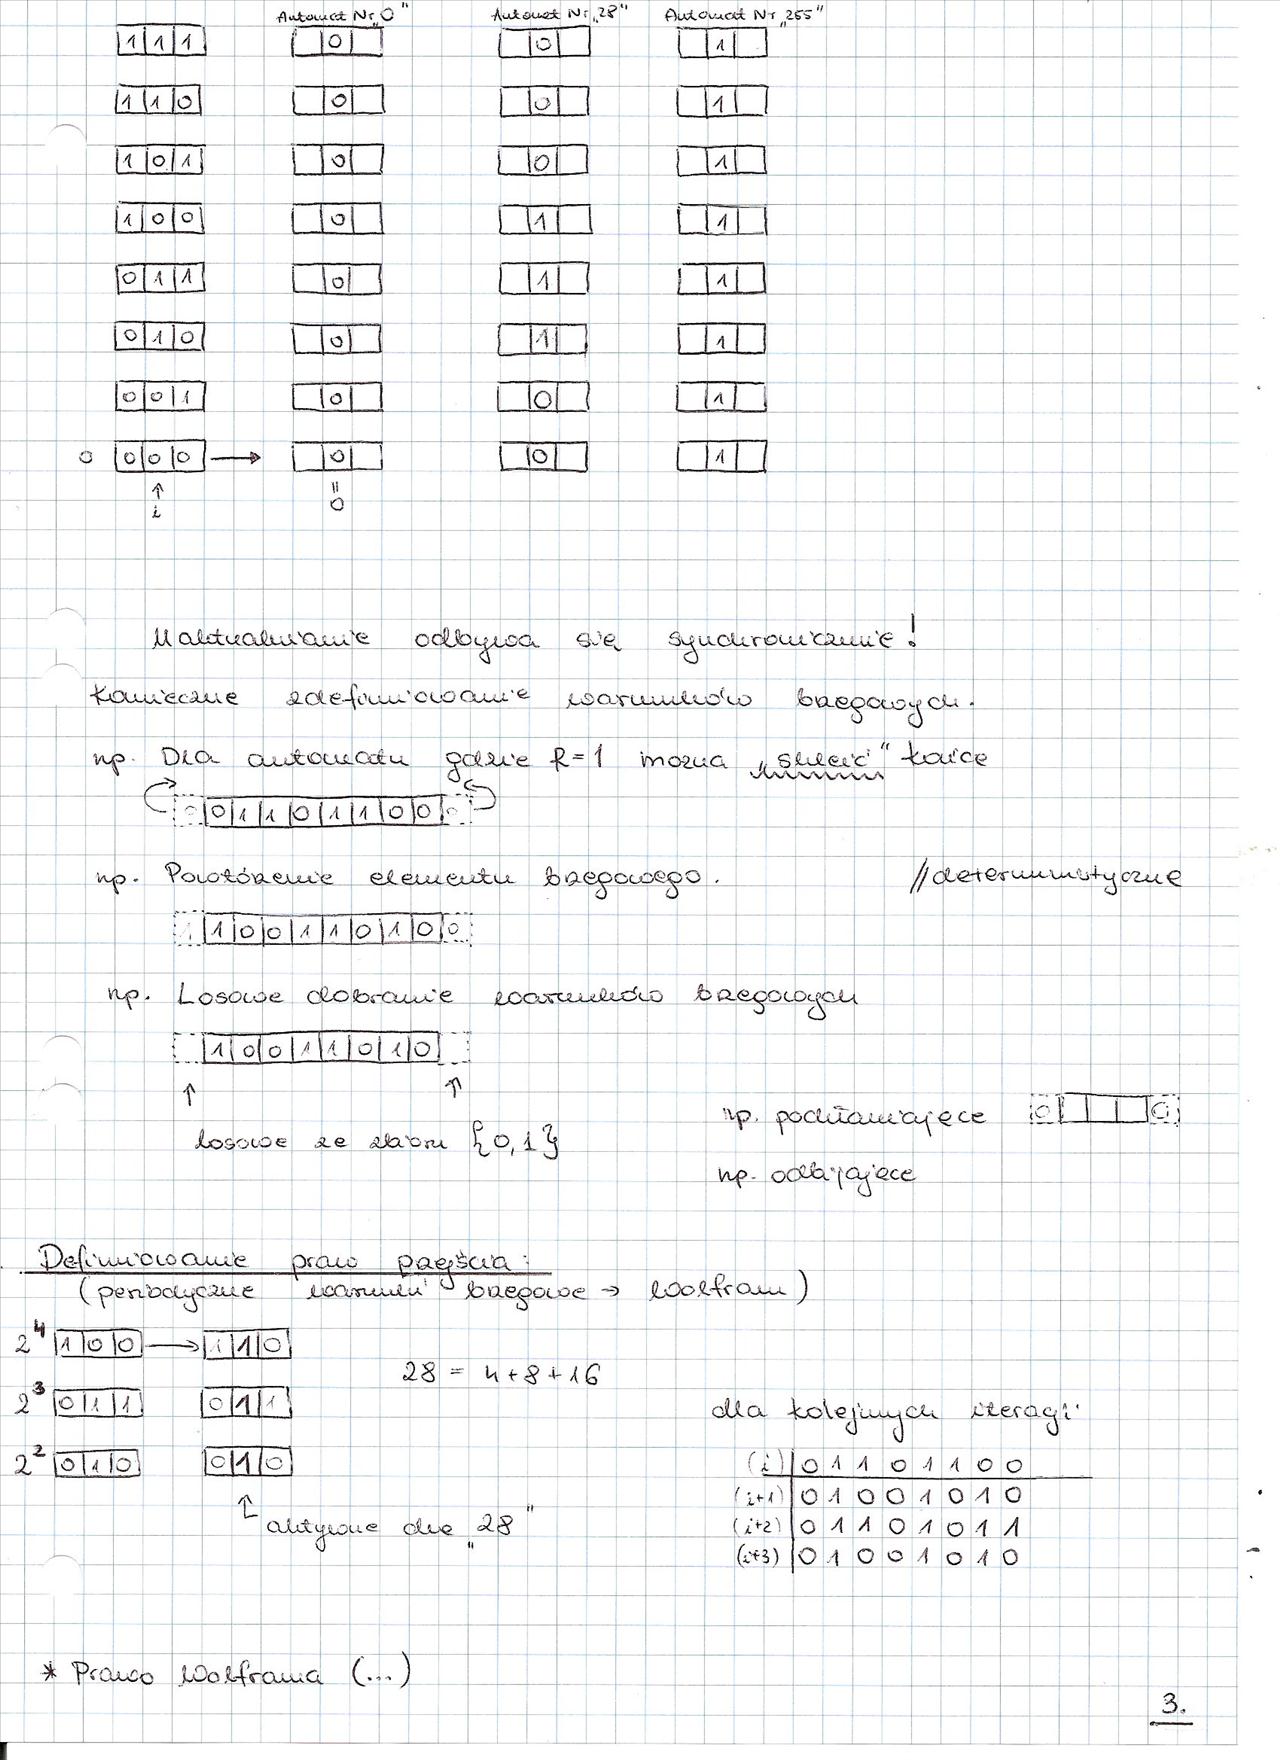 Automat Nr „0" Automat Nr „28" Automat Nr „255"
1 1 1 0 0 1
1 1 0 0 0 1
1 0 1 0 0 1
1 0 0 0 1 1
0 1 1 0 1 1
0 1 0 0 1 1
0 0 1 0 0 1
0 0 0 0 → 0 0 1
↑ =
i 0
Uaktualnianie odbywa się synchronicznie!
Konieczne zdefiniowanie warunków brzegowych.
np. Dla automatu gdzie R=1 można „skleić" końce
0 0 1 1 0 1 1 0 0 0
np. Powtórzenie elementu brzegowego. //deterministyczne
1 1 0 0 1 1 0 1 0 0
np. Losowe dobranie warunków brzegowych
1 0 0 1 1 0 1 0
↑ ↑
losowe ze zbioru {0,1}
np. pochłaniające 0 0
np. odbijające
Definiowanie praw przejścia:
(periodyczne warunki brzegowe → Wolfram)
2⁴ 1 0 0 → 1 1 0
28 = 4+8+16
2³ 0 1 1 0 1 1
dla kolejnych iteracji:
2² 0 1 0 0 1 0
(i) 0 1 1 0 1 1 0 0
(i+1) 0 1 0 0 1 0 1 0
↑ aktywne dla „28"
(i+2) 0 1 1 0 1 0 1 1
(i+3) 0 1 0 0 1 0 1 0
* Prawo Wolframa (...)
3.